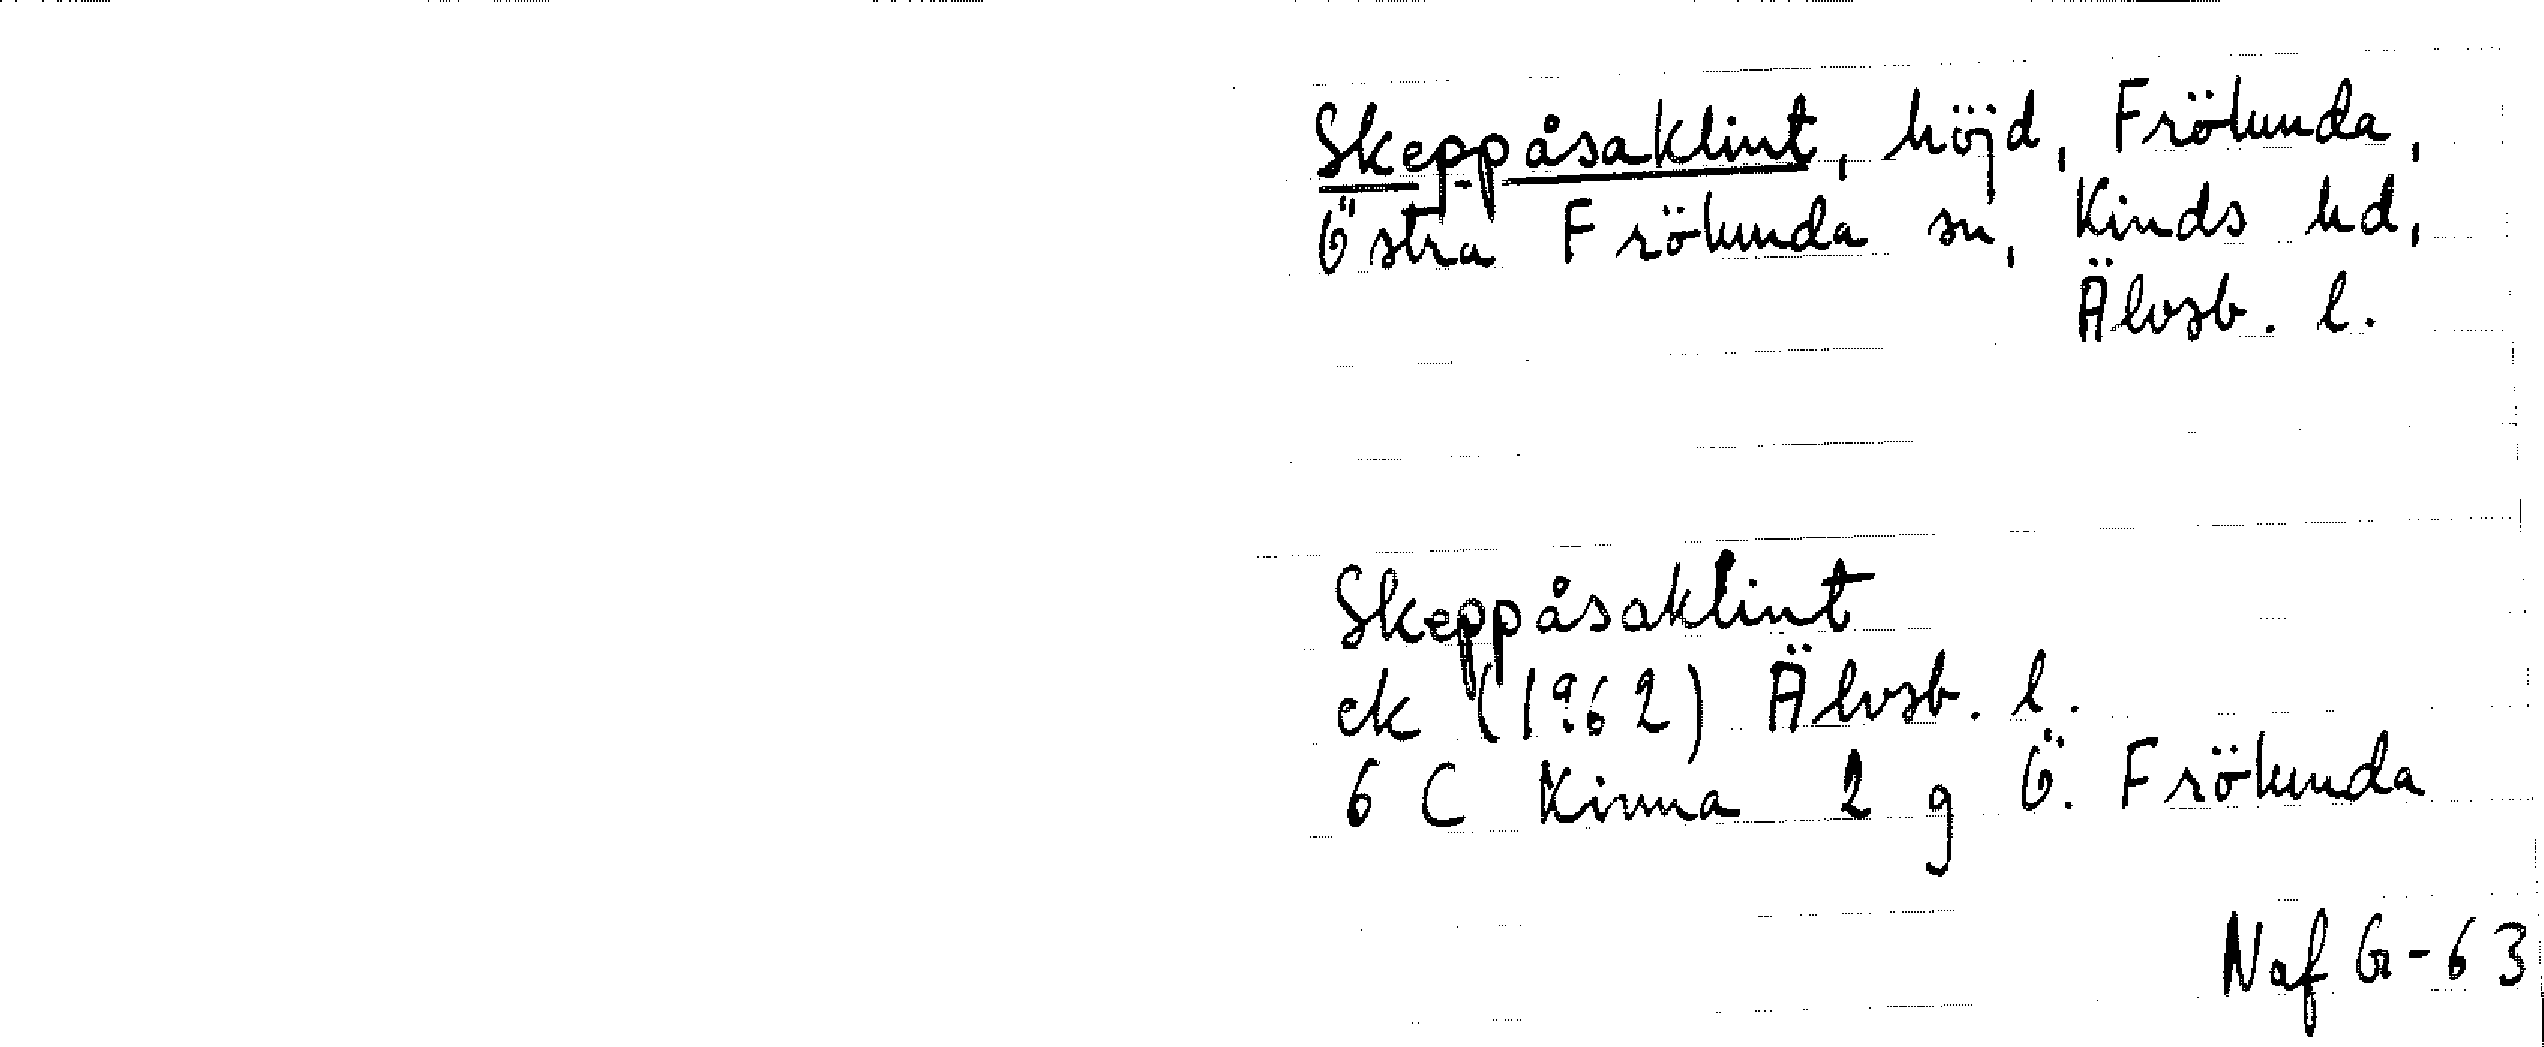 Skeppåsaklint, höjd, Frölunda,
Östra Frölunda sn, Kinds hd,
Älvsb. l.
Skeppåsaklint
ek (1962) Älvsb. l.
6 C Kinna 2 g Ö. Frölunda
Naf G-63